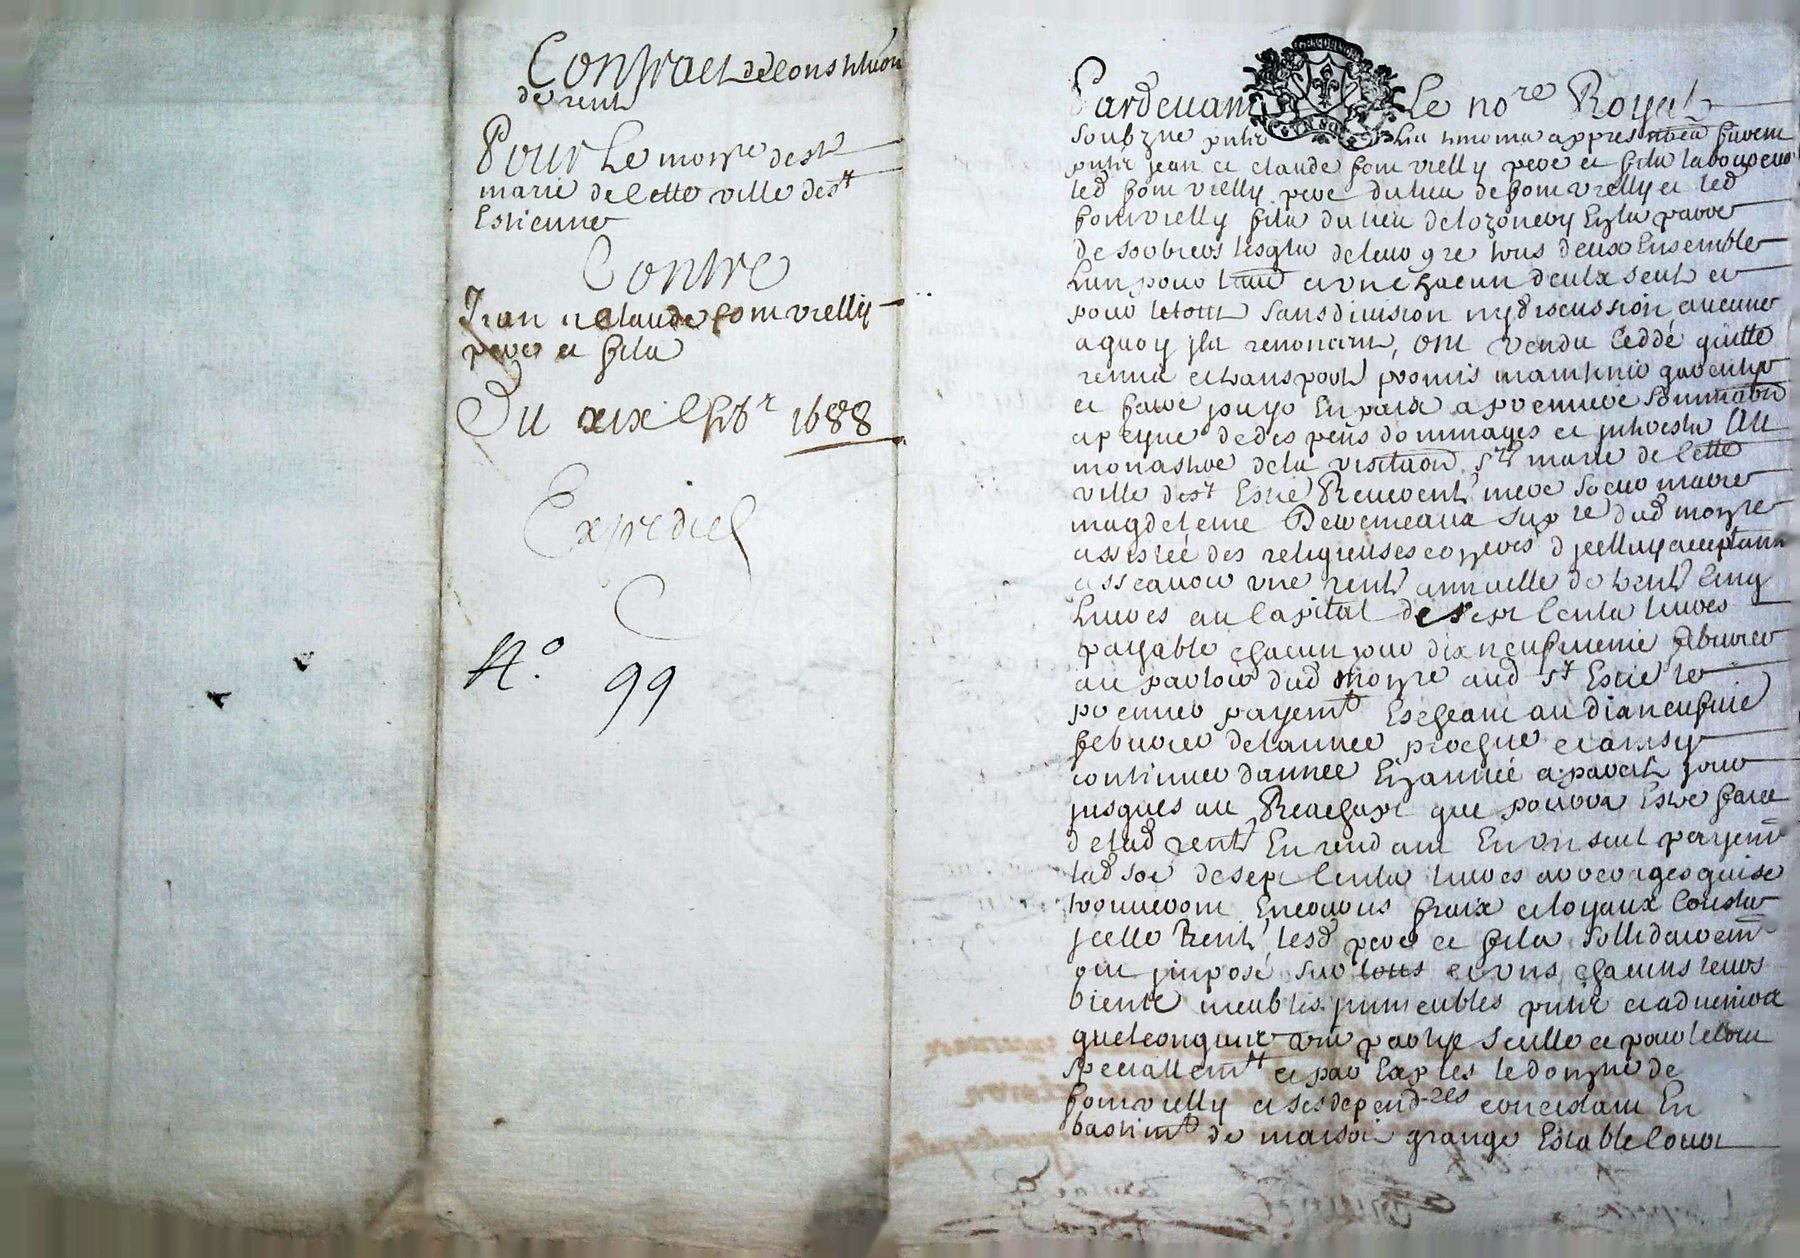 Contract de constituon
de rente
Pour le monre de ste
marie de cette ville de st
Estienne
Contre
Jean et Claude fomvielly
pere et fils
Du xix 9bre 1688
Expedié
N.o 99
Pardevant Le nore Royal
soubzne putz les tesmoins appres furent
putz jean et claude fomvielly pere et fils laboureurs
led fomvielly pere du lieu de fomvielly et led
fomvielly fils du lieu de en la parre
de lesqls de leur gre tous deux ensemble
lun pour laue et un chacun deulx seul et
pour le tout sans division ny discussion aucune
a quoy jls renoncent, ont vendu ceddé quitte
remis et transporté promis maintenir garentir
et faire jouyr en paix a premiere sommaon
a peyne de despens dommages et jnterests Au
monastere de la visitaon ste marie de cette
ville de st Estie Reverente mere soeur marie
magdeleine supre dud monre
assistée des religieuses d jcelluy acceptant
assçavoir une rente annuelle de trente cinq
livres au capital de sept cents livres
payable chacun jour dixneufvieme febvrier
au parloir dud monre aud st Estie le
premier payemt escheant au dixneufvie
febvrier de lannee proche et ainsy
continuer dannee en année a pareil jour
jusques au Reachapt que pourra estre faict
de lad rente en rendant en un seul payemt
lad soe de sept cents livres arrerages qui se
trouveront encourus fraix et loyaux cousts
jcelle Rente lesd pere et fils sollidairemt
ont jmposé sur tous et uns chacuns leurs
biens meubles jmmeubles putz et advenir
quelconques une partye seulle et pour le tout
speciallemt et par expres le domyne de
fomvielly et ses dependces concistant en
bastimt de maison grange estable court